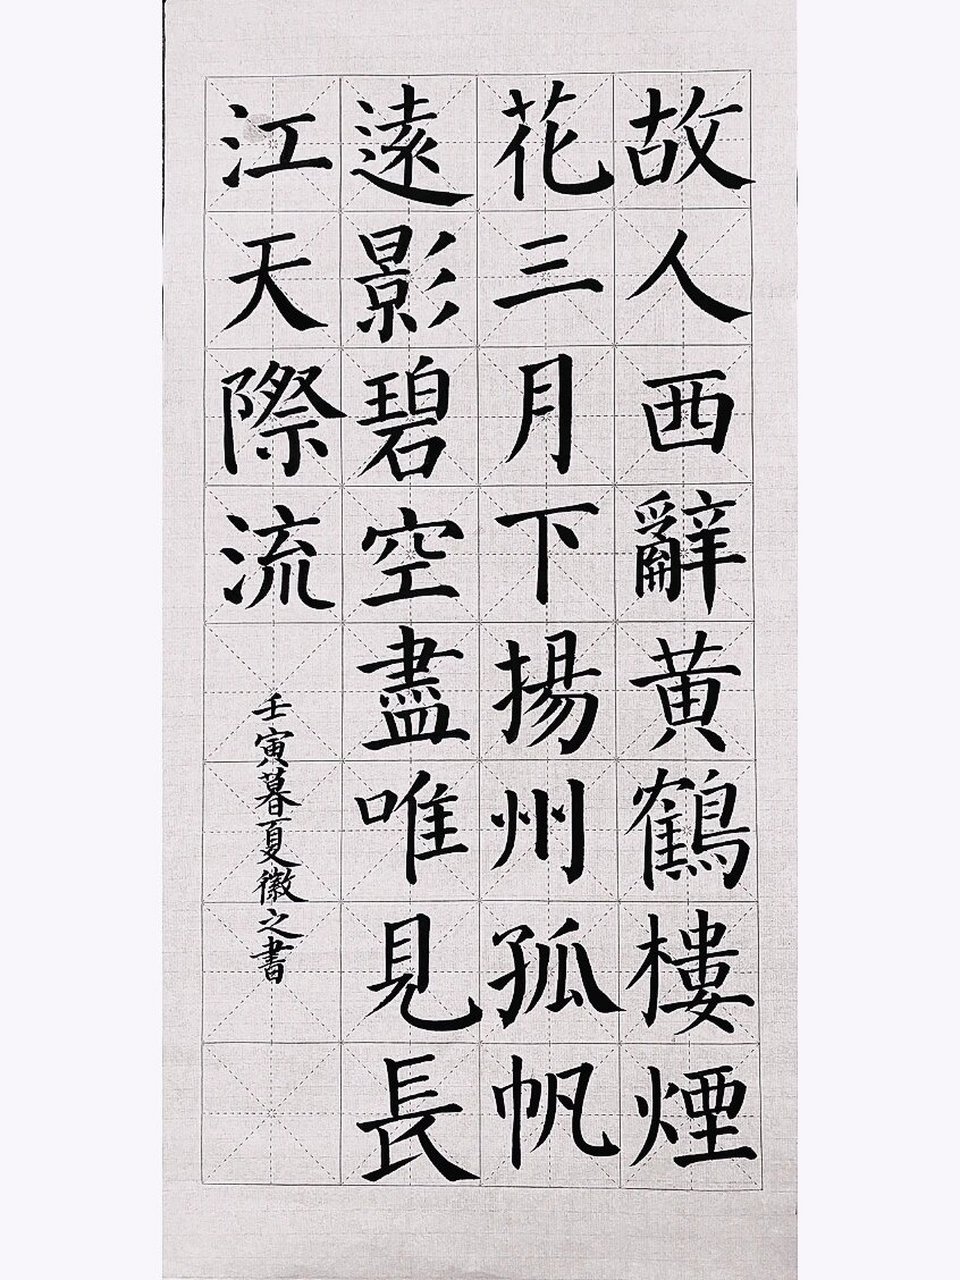 故人西辭黄鶴樓煙
花三月下揚州孤帆
遠影碧空盡唯見長
江天際流
壬寅暮夏徽之書